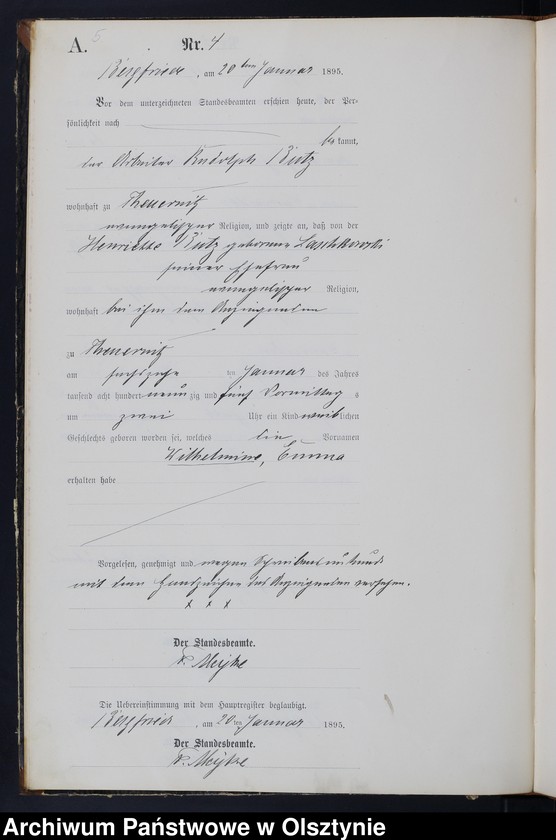 A. 5 Nr. 4
Bergfriede, am 20ten Januar 1895.
Vor dem unterzeichneten Standesbeamten erschien heute, der Per-
sönlichkeit nach
bekannt,
der Arbeiter Rudolph
wohnhaft zu Theuernitz
evangelischer Religion, und zeigte an, daß von der
Henriette geborene Laschkowski
seiner Ehefrau
evangelischer Religion,
wohnhaft bei ihm dem Anzeigenden
zu Theuernitz
am sechszehn ten Januar des Jahres
tausend acht hundert neunzig und fünf Vormittags
um zwei Uhr ein Kind weiblichen
Geschlechts geboren worden sei, welches die Vornamen
Wilhelmine, Emma
erhalten habe
Vorgelesen, genehmigt und wegen Schreibensunkunde
mit dem Handzeichen des Anzeigenden versehen.
x x x
Der Standesbeamte.
Die Uebereinstimmung mit dem Hauptregister beglaubigt.
Bergfriede, am 20ten Januar 1895.
Der Standesbeamte.
Archiwum Państwowe w Olsztynie